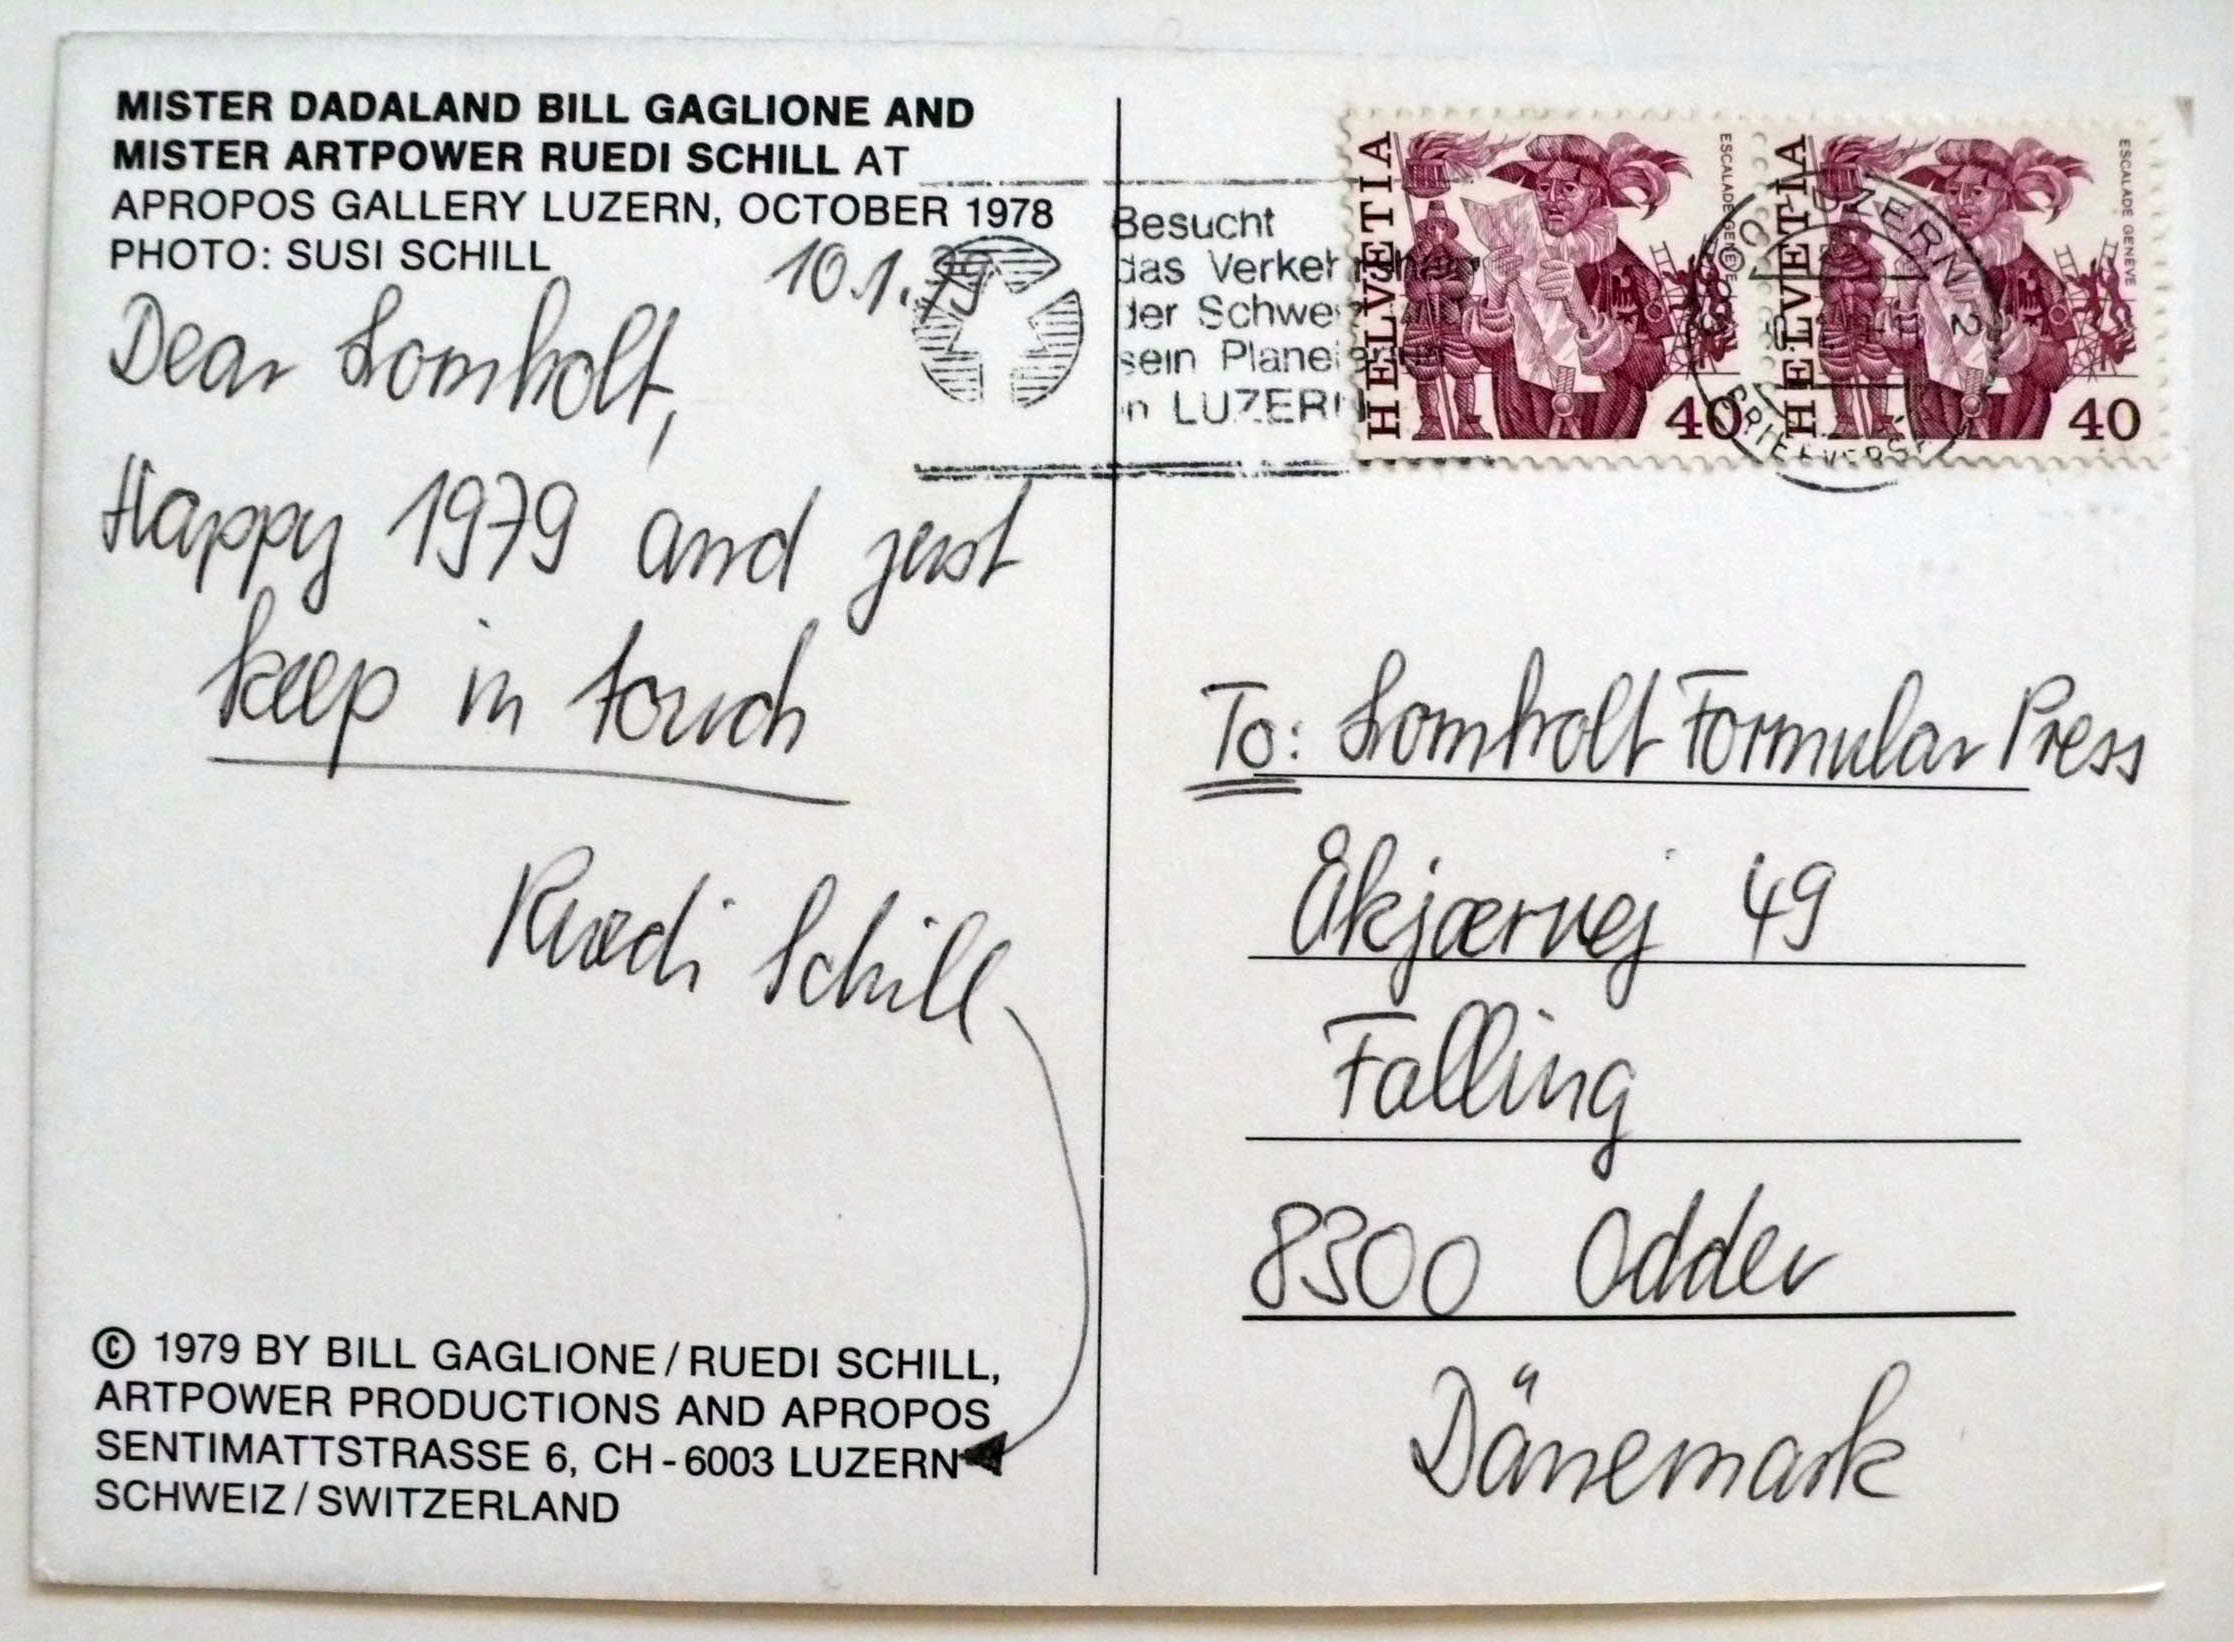 MISTER DADALAND BILL GAGLIONE AND
MISTER ARTPOWER RUEDI SCHILL AT
APROPOS GALLERY LUZERN, OCTOBER 1978
PHOTO: SUSI SCHILL
10.1.79
Dear Lomholt,
Happy 1979 and just
keep in touch
Ruedi Schill
© 1979 BY BILL GAGLIONE / RUEDI SCHILL,
ARTPOWER PRODUCTIONS AND APROPOS
SENTIMATTSTRASSE 6, CH - 6003 LUZERN
SCHWEIZ / SWITZERLAND
Besucht
das Verkehrshaus
der Schweiz
sein Planetarium
in LUZERN
HELVETIA
ESCALADE GENÈVE
40
HELVETIA
ESCALADE GENÈVE
40
LUZERN 2
BRIEFVERSAND
To: Lomholt Formular Press
Åkjærvej 49
Falling
8300 Odder
Dänemark